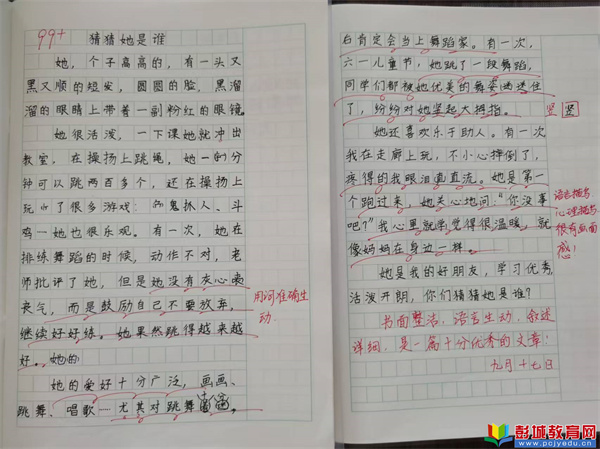 99+
猜猜她是谁
她，个子高高的，有一头又
黑又顺的短发，圆圆的脸，黑溜
溜的眼睛上带着一副粉红的眼镜。
她很活泼，一下课她就冲出
教室，在操场上跳绳，她一分
钟可以跳两百多个，还在操场上
玩了很多游戏：鬼抓人、斗
鸡…她也很乐观。有一次，她在
排练舞蹈的时候，动作不对，老
师批评了她，但是她没有灰心丧
丧气，而是鼓励自己不要放弃，
继续好好练。她果然跳得越来越
好。她的
她的爱好十分广泛，画画、
跳舞、唱歌……尤其对跳舞
用词准确生
动.
白肯定会当上舞蹈家。有一次，
六一儿童节，她跳了一段舞蹈，
同学们都被她优美的舞姿迷住
了，纷纷对她竖起大拇指。
竖 竖
她还喜欢乐于助人。有一次
我在走廊上玩，不小心摔倒了，
疼得的我眼泪直流。她是第一
个跑过来，她关心地问：“你没事
吧？”我心里就觉得很温暖，就
像妈妈在身边一样。
语言描写
心理描写
很有画面
感！
她是我的好朋友，学习优秀，
活泼开朗，你们猜猜她是谁？
书面整洁，语言生动，叙述
详细，是一篇十分优秀的文章！
九月十七日
彭城教育网
www.pcjyedu.cn